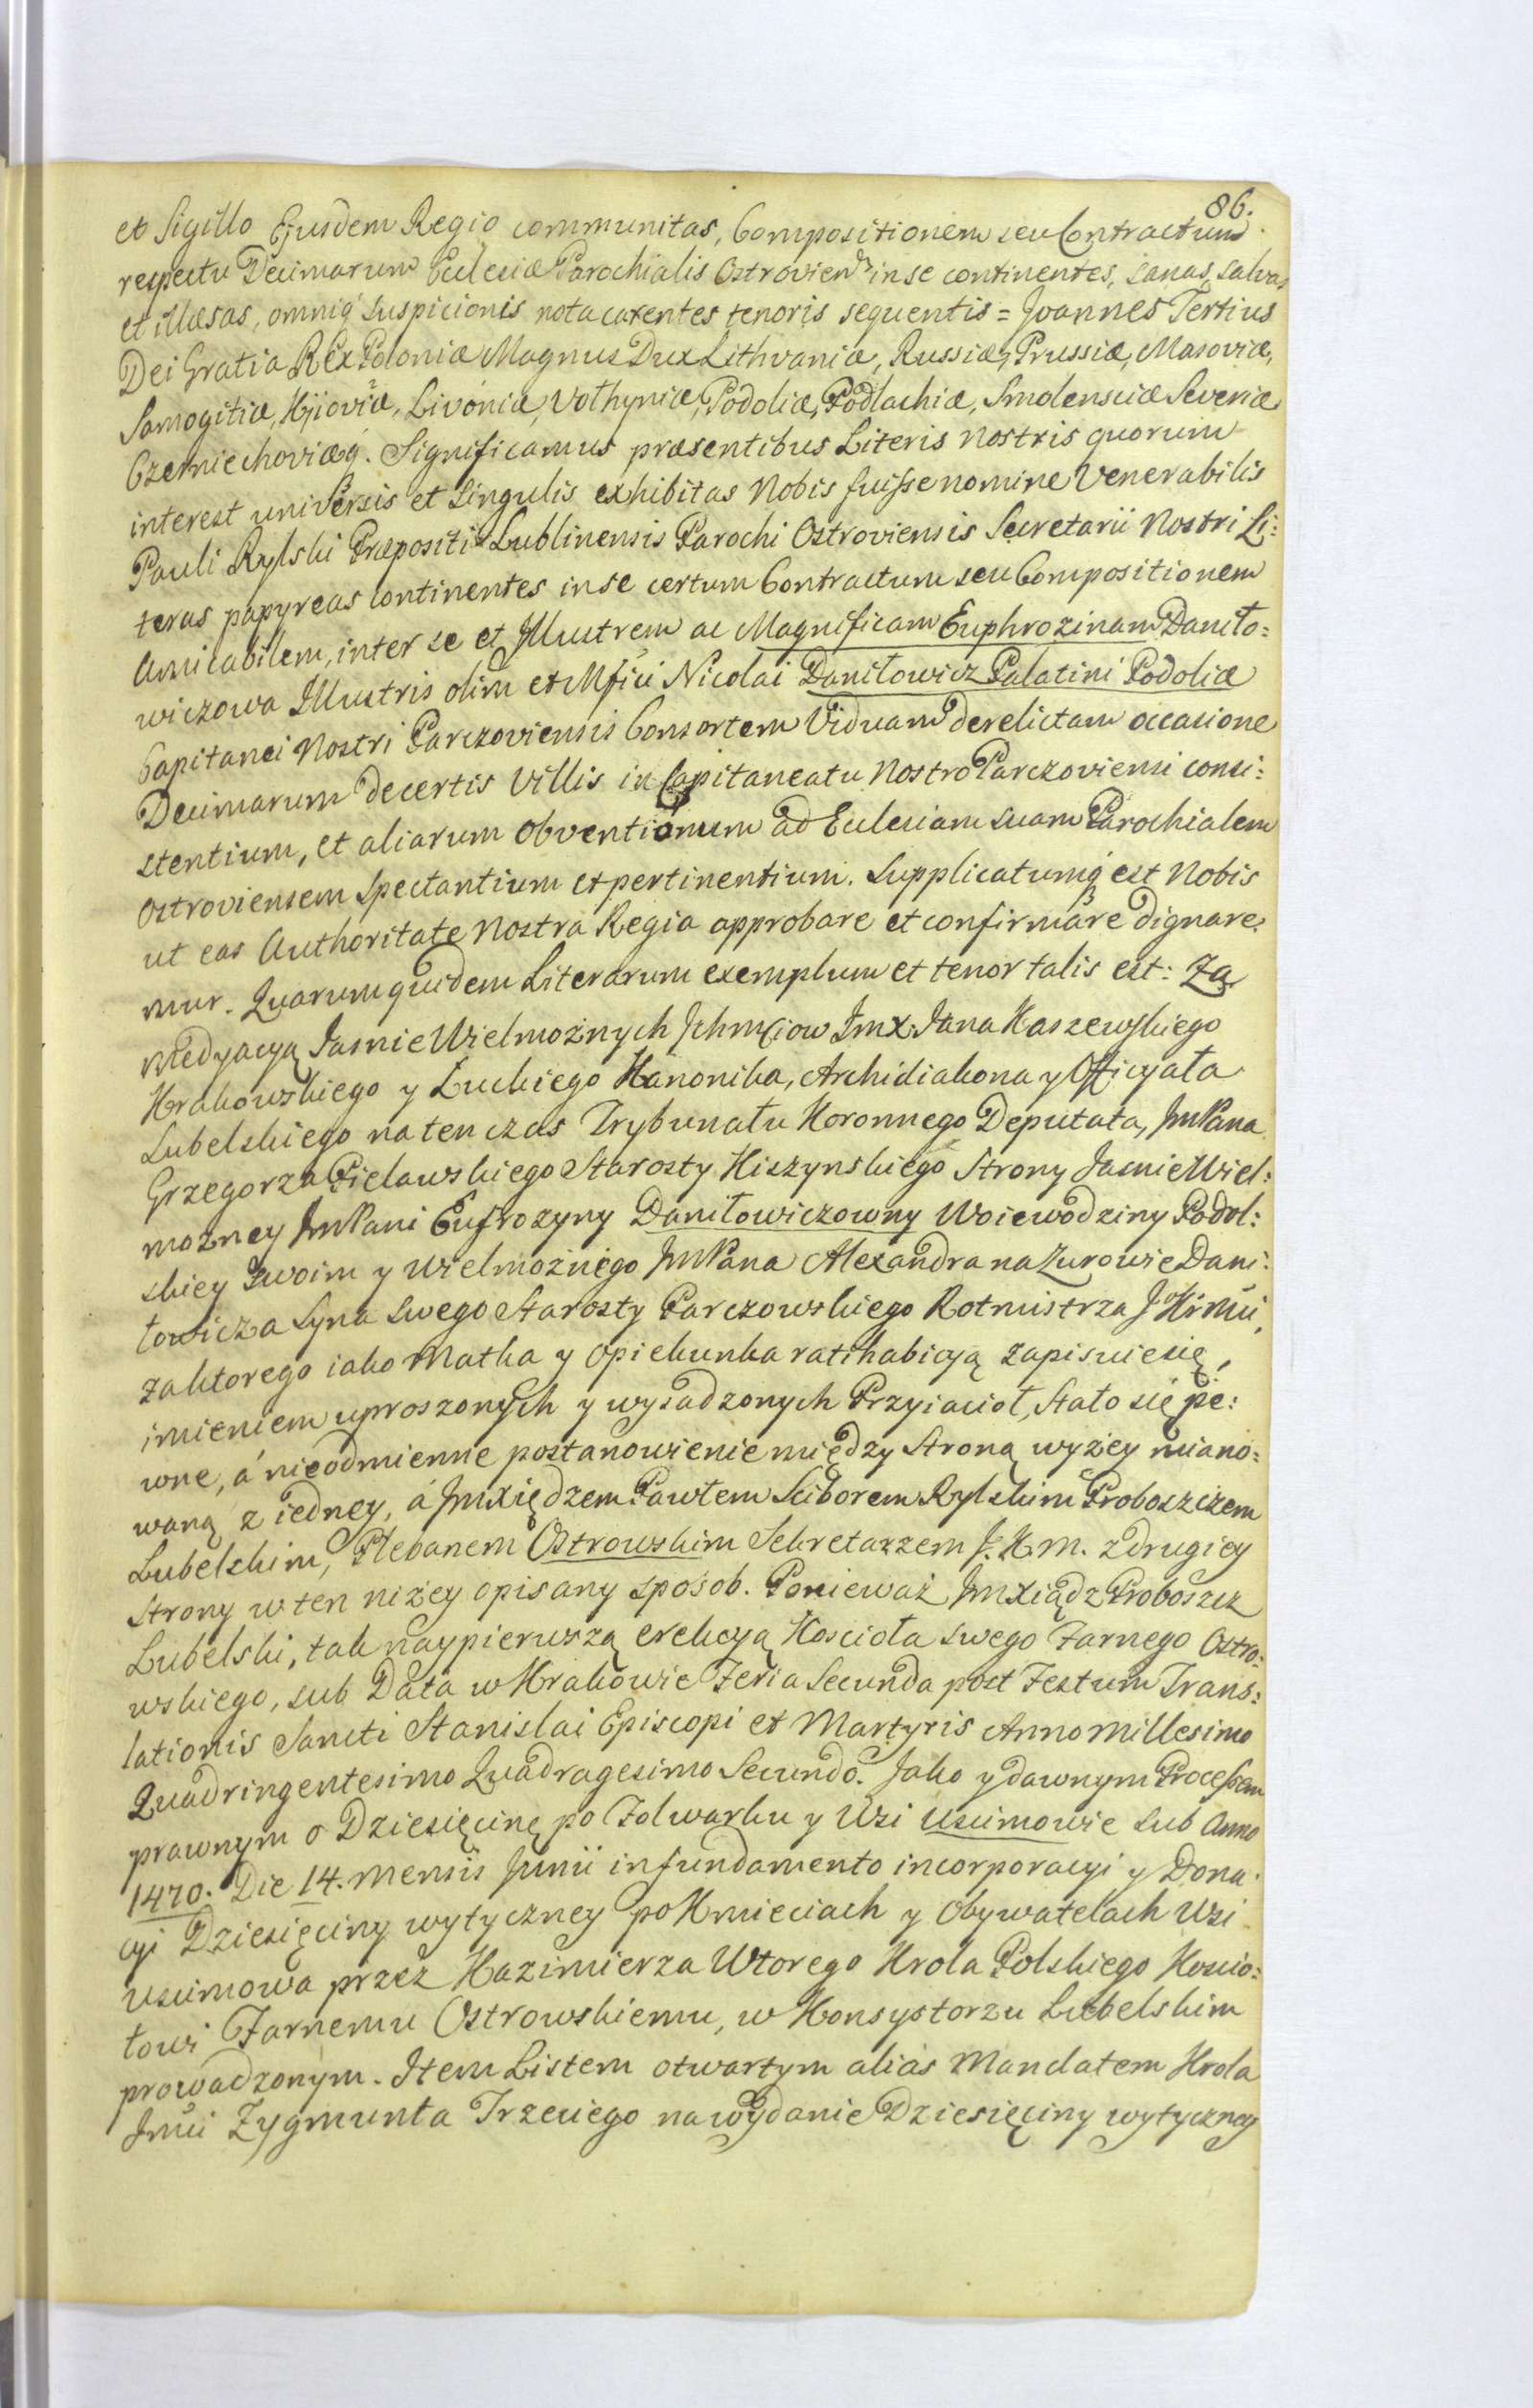 86.
et Sigillo Ejusdem Regio communitas, Compositionem seu Contractum
respectu Decimarum Eclesiæ Parochialis Ostrovien: in se continentes, sanas, salvas
et illæsas, omniq́ suspicionis nota carentes tenoris sequentis = Joannes Tertius
Dei Gratia Rex Poloniæ Magnus Dux Lithvaniæ, Russiæ, Prussiæ, Masoviæ,
Samogitiæ, Kijoviæ, Livoniæ, Volhyniæ, Podoliæ, Podlachiæ, Smolensciæ Severiæ
Czerniechoviæq́. Significamus præsentibus Literis Nostris quorum
interest universis et singulis exhibitas Nobis fuisse nomine Venerabilis
Pauli Rylski Præpositi Lublinensis Parochi Ostroviensis Secretarii Nostri Li:
teras papyreas continentes in se certum Contractum seu Compositionem
Amicabilem, inter se et Illustrem ac Magnificam Euphrozinam Daniło=
wiczowa Illustris olim et Mfici Nicolai Daniłowicz Palatini Podoliæ
Capitanei Nostri Parczoviensis Consortem Viduam derelictam occasione
Decimarum de certis Villis in Capitaneatu Nostro Parczoviensi consi:
stentium, et aliarum obventionum ad Eclesiam suam Parochialem
Ostroviensem spectantium et pertinentium. Supplicatumq́ est Nobis
ut eas Authoritate Nostra Regia approbare et confirmare dignare:
mur. Quarum quidem Literarum exemplum et tenor talis est: Za
Medyacyą Jasnie Wielmożnych Ichmciow Jmx. Jana Kaszewskiego
Krakowskiego y Łuckiego Kanonika, Archidiakona y Officyała
Lubelskiego na ten czas Trybunału Koronnego Deputata, JmPana
Grzegorza Pielawskiego Starosty Kiszynskiego Strony Jasnie Wiel:
możney JmPani Eufrozyny Daniłowiczowny Woiewodziny Podol:
skiey swoim y Wielmożnego JmPana Alexandra na Zurowie Dani:
łowicza Syna swego Starosty Parczowskiego Rotmistrza J Krmci,
za ktorego iako Matka y Opiekunka ratihabicyą zapisuie się,
imieniem uproszonych y wysadzonych Przyiacioł, Stało się pe:
wne, á nieodmienne postanowienie między Stroną wyżey miano:
waną z iedney, á Jmxiędzem Pawłem Sciborem Rylskim Proboszczem
Lubelskim, Plebanem Ostrowskim Sekretarzem J. K. m. z drugiey
Strony w ten niżey opisany sposob. Ponieważ Jmxiądz Proboszcz
Lubelski, tak naypierwszą erekcyą Koscioła swego Farnego Ostro:
wskiego, sub Data w Krakowie Feria Secunda post Festum Trans:
lationis Sancti Stanislai Episcopi et Martyris Anno Millesimo
Quadringentesimo Quadragesimo Secundo. Jako y dawnym Processem
prawnym o Dziesięcinę po Folwarku y Wsi Uscimowie sub Anno
1470. Die 14. Mensis Junii in fundamento incorporacyi y Dona:
cyi Dziesięciny wytyczney po Kmieciach y Obywatelach Wsi
Uscimowa przez Kazimierza Wtorego Krola Polskiego Koscio:
łowi Farnemu Ostrowskiemu, w Konsystorzu Lubelskim
prowadzonym. Item Listem otwartym alias Mandatem Krola
Jmci Zygmunta Trzeciego na wydanie Dziesięciny wytyczney